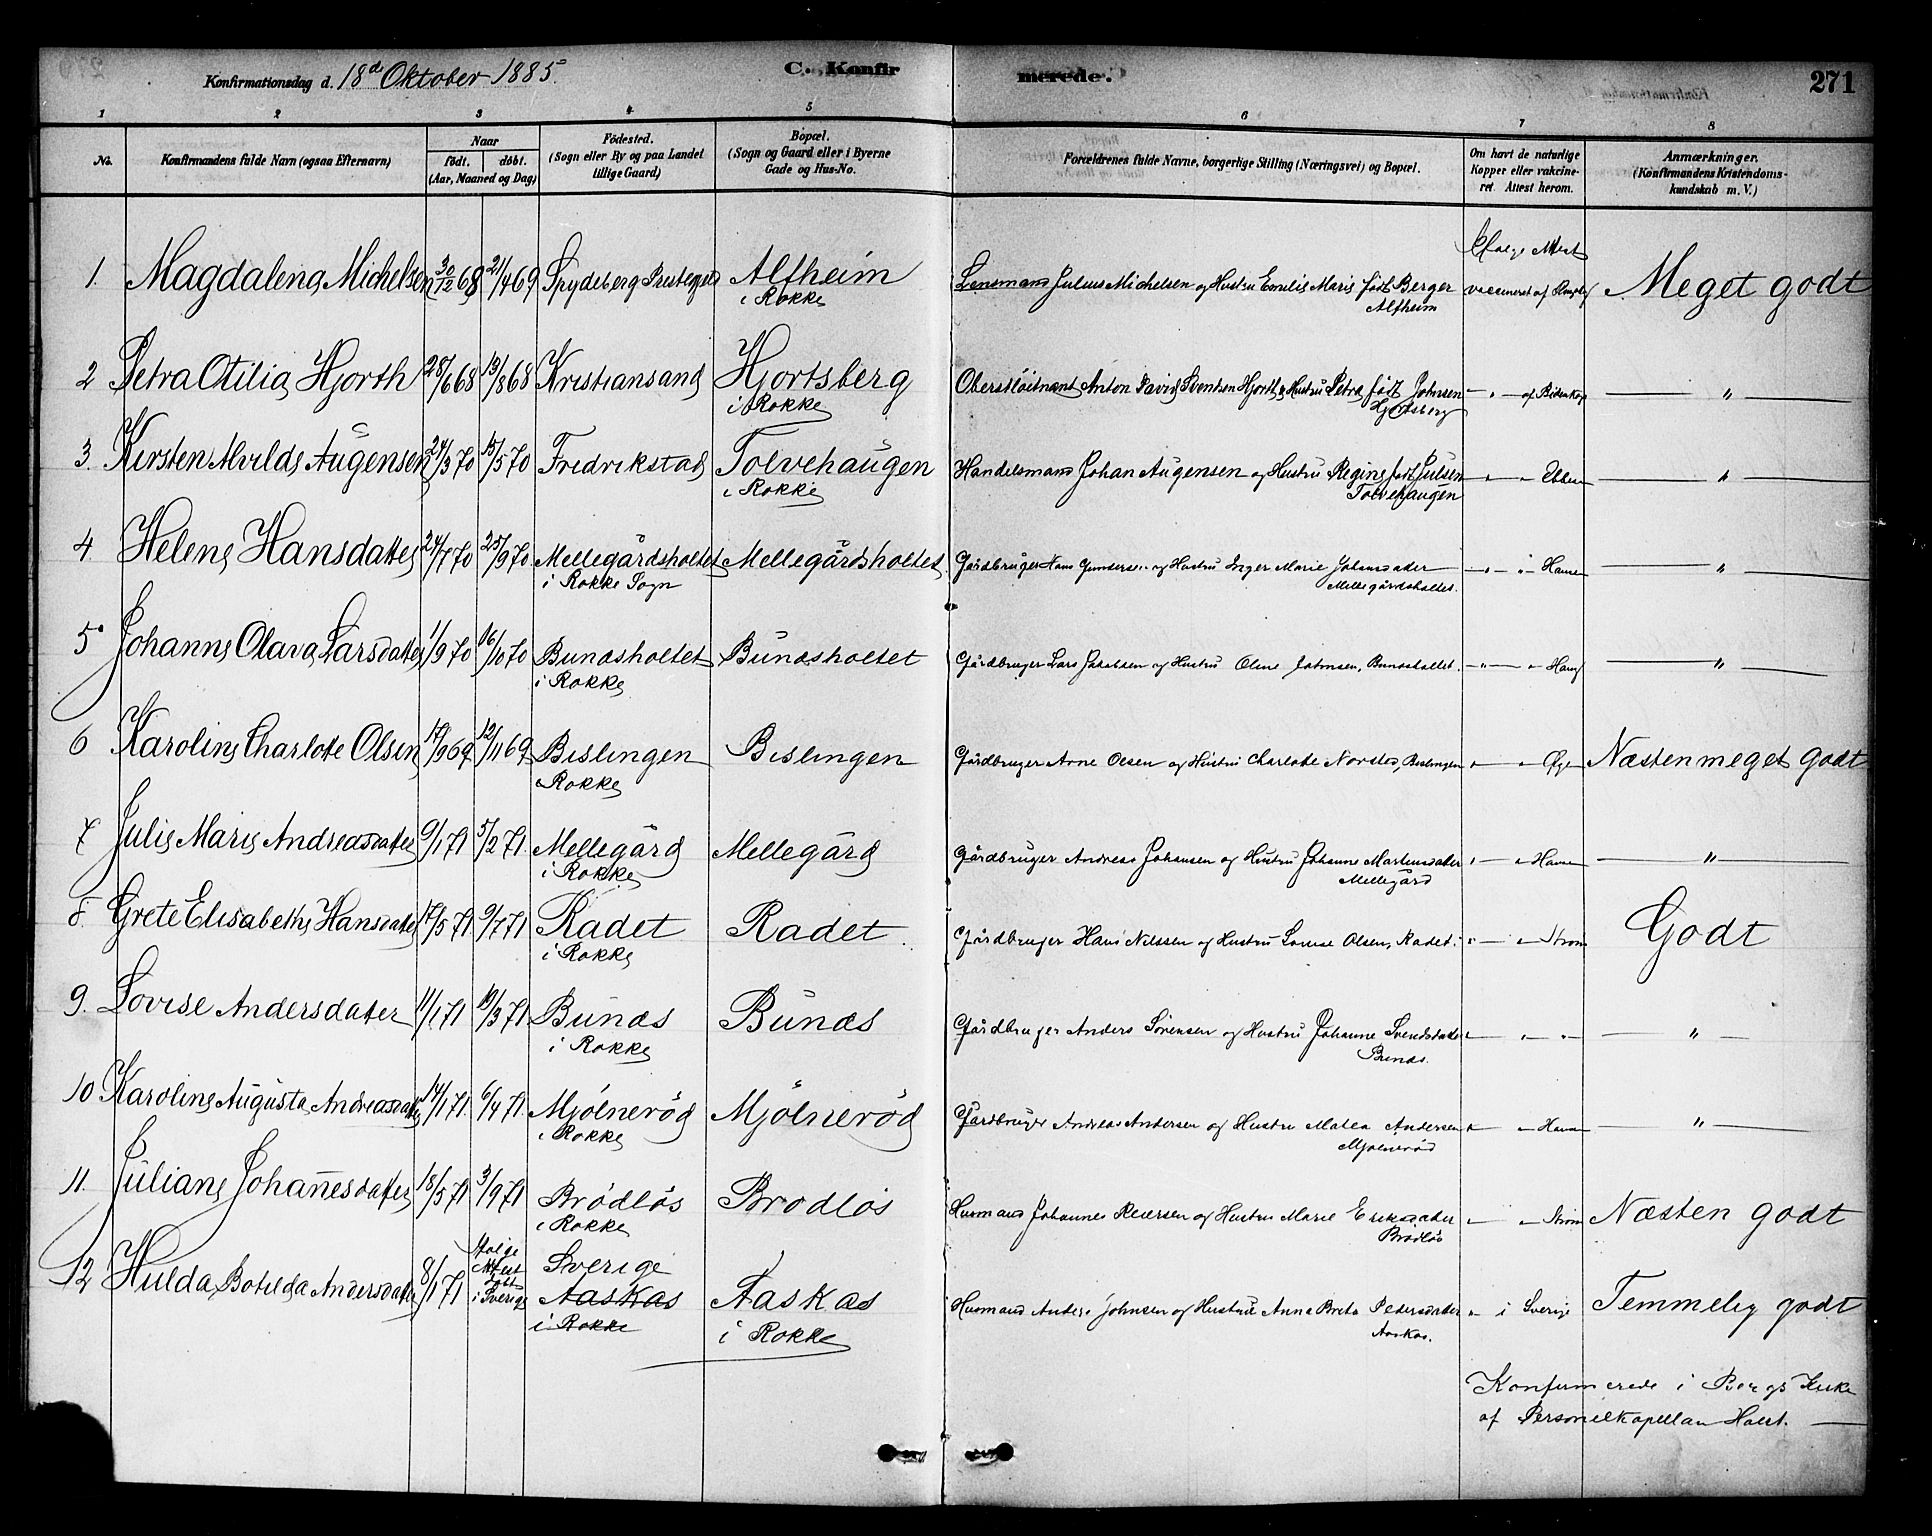 Konfirmationsdag d. 18de Oktober 1885. C. Konfirmerede. 271
1 2 3 4 5 6 7 8
No. Konfirmandens fulde Navn (ogsaa Efternavn) Naar født. døbt. (Aar, Maaned og Dag) Fødested. (Sogn eller By og paa Landet tillige Gaard) Bopæl. (Sogn og Gaard eller i Byerne Gade og Hus-No. Forældrenes fulde Navne, borgerlige Stilling (Næringsvei) og Bopæl. Om havt de naturlige Kopper eller vakcineret. Attest herom. Anmærkninger. (Konfirmandens Kristendomskundskab m. V.)
1. Magdalena Michelsen 30/12 68 21/4 69 Spydeberg Prestegjeld Alfheim i Rokke Lensmand Julius Michelsen og Hustru Emilie Marie født Berger Alfheim Attest vaccineret af Meget godt
2 Petra Otilia Hjorth 28/6 68 13/8 68 Kristiansand Hjortsberg i Rokke Oberstløitnant Anton David Svenssen Hjorth og Hustru Petra født Johnsen Hjortsberg - " - af - " -
3. Kirsten Alvilde Augensen 24/3 70 15/5 70 Fredrikstad Tolvehaugen i Rokke Handelsmand Johan Augensen og Hustru Regine født Julsen Tolvehaugen - " - " - " -
4 Helene Hansdatter 24/7 70 25/9 70 Mellegårdsholtet i Rokke Sogn Mellegårdsholtet Gårdbruger Hans Gundersen og Hustru Inger Marie Johansdater Mellegårdsholtet. - " - " - " -
5 Johanne Olava Larsdatter 1/9 70 16/10 70 Bundsholtet i Rokke Bundsholtet Gårdbruger Lars Jakobsen og Hustru Oline Johnsen, Bundsholtet. - " - " - Haug - " -
6 Karoline Charlotte Olsen 17/9 69 12/11 69 Bislingen Rokke Bislingen Gårdbruger Arne Olsen og Hustru Charlotte Norstad, Bislingen " - " Øge Næsten meget godt
7 Julie Marie Andreasdatter 9/1 71 5/2 71 Mellegård i Rokke Mellegård Gårdbruger Andreas Johansen og Hustru Johanne Martinsdater Mellegård " - " - " -
8. Grete Elisabethe Hansdatter 17/5 71 9/7 71 Radet i Rokke Radet. Gårdbruger Hans Nilssen og Hustru Lovise Olsen, Radet. " - " Strøm Godt
9. Lovise Andersdater 11/1 71 19/3 71 Bunæs i Rokke Bunæs Gårdbruger Anders Sørensen og Hustru Johanne Svendsdater Bunæs. " - " - " - - " -
10 Karoline Augusta Andreasdatter 14/1 71. 6/4 71. Mjölneröd i Rokke Mjölneröd Gårdbruger Andreas Andersen og Hustru Matea Andersen Mjölneröd " - " - " -
11. Juliane Johannesdater 18/5 71 3/9 71 Brödlös i Rokke Brödlös Husmand Johannes Reiersen og Hustru Marie Eriksdater Brödlös - " Strøm Næsten godt
12 Hulda Botilda Andersdatter 8/1 71 ifølge Attest døbt i Sverige Sverige Aaskas i Rokke Aaskas i Rokke Husmand Anders Johnsen og Hustru Anna Brita Pedersdater Aaskas. " i Sverige Temmelig godt
Konfirmerede i Bergs Kirke
af Personelkapellan Holst.